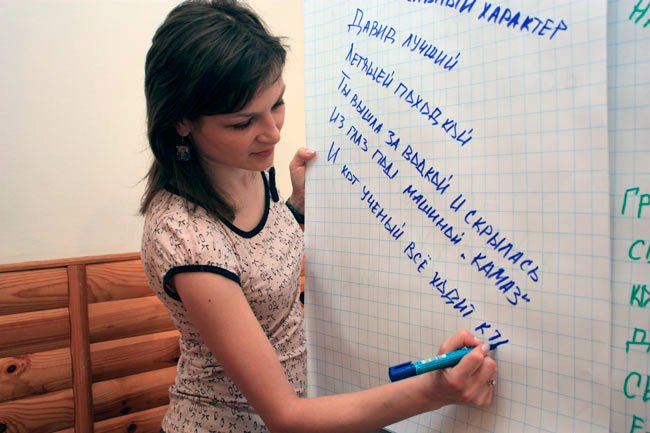 ХАРАКТЕР
ДАВИД ЛУЧШИЙ
ЛЕТЯЩЕЙ ПОХОДКОЙ
ТЫ ВЫШЛА ЗА ВОДКОЙ И СКРЫЛАСЬ
ИЗ ГЛАЗ ПОД МАШИНОЙ „КАМАЗ“
И КОТ УЧЕНЫЙ ВСЁ ХОДИТ